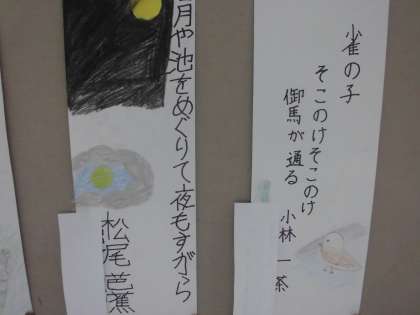 雀の子
そこのけそこのけ
御馬が通る
小林一茶
月や池をめぐりて夜もすがら
松尾芭蕉